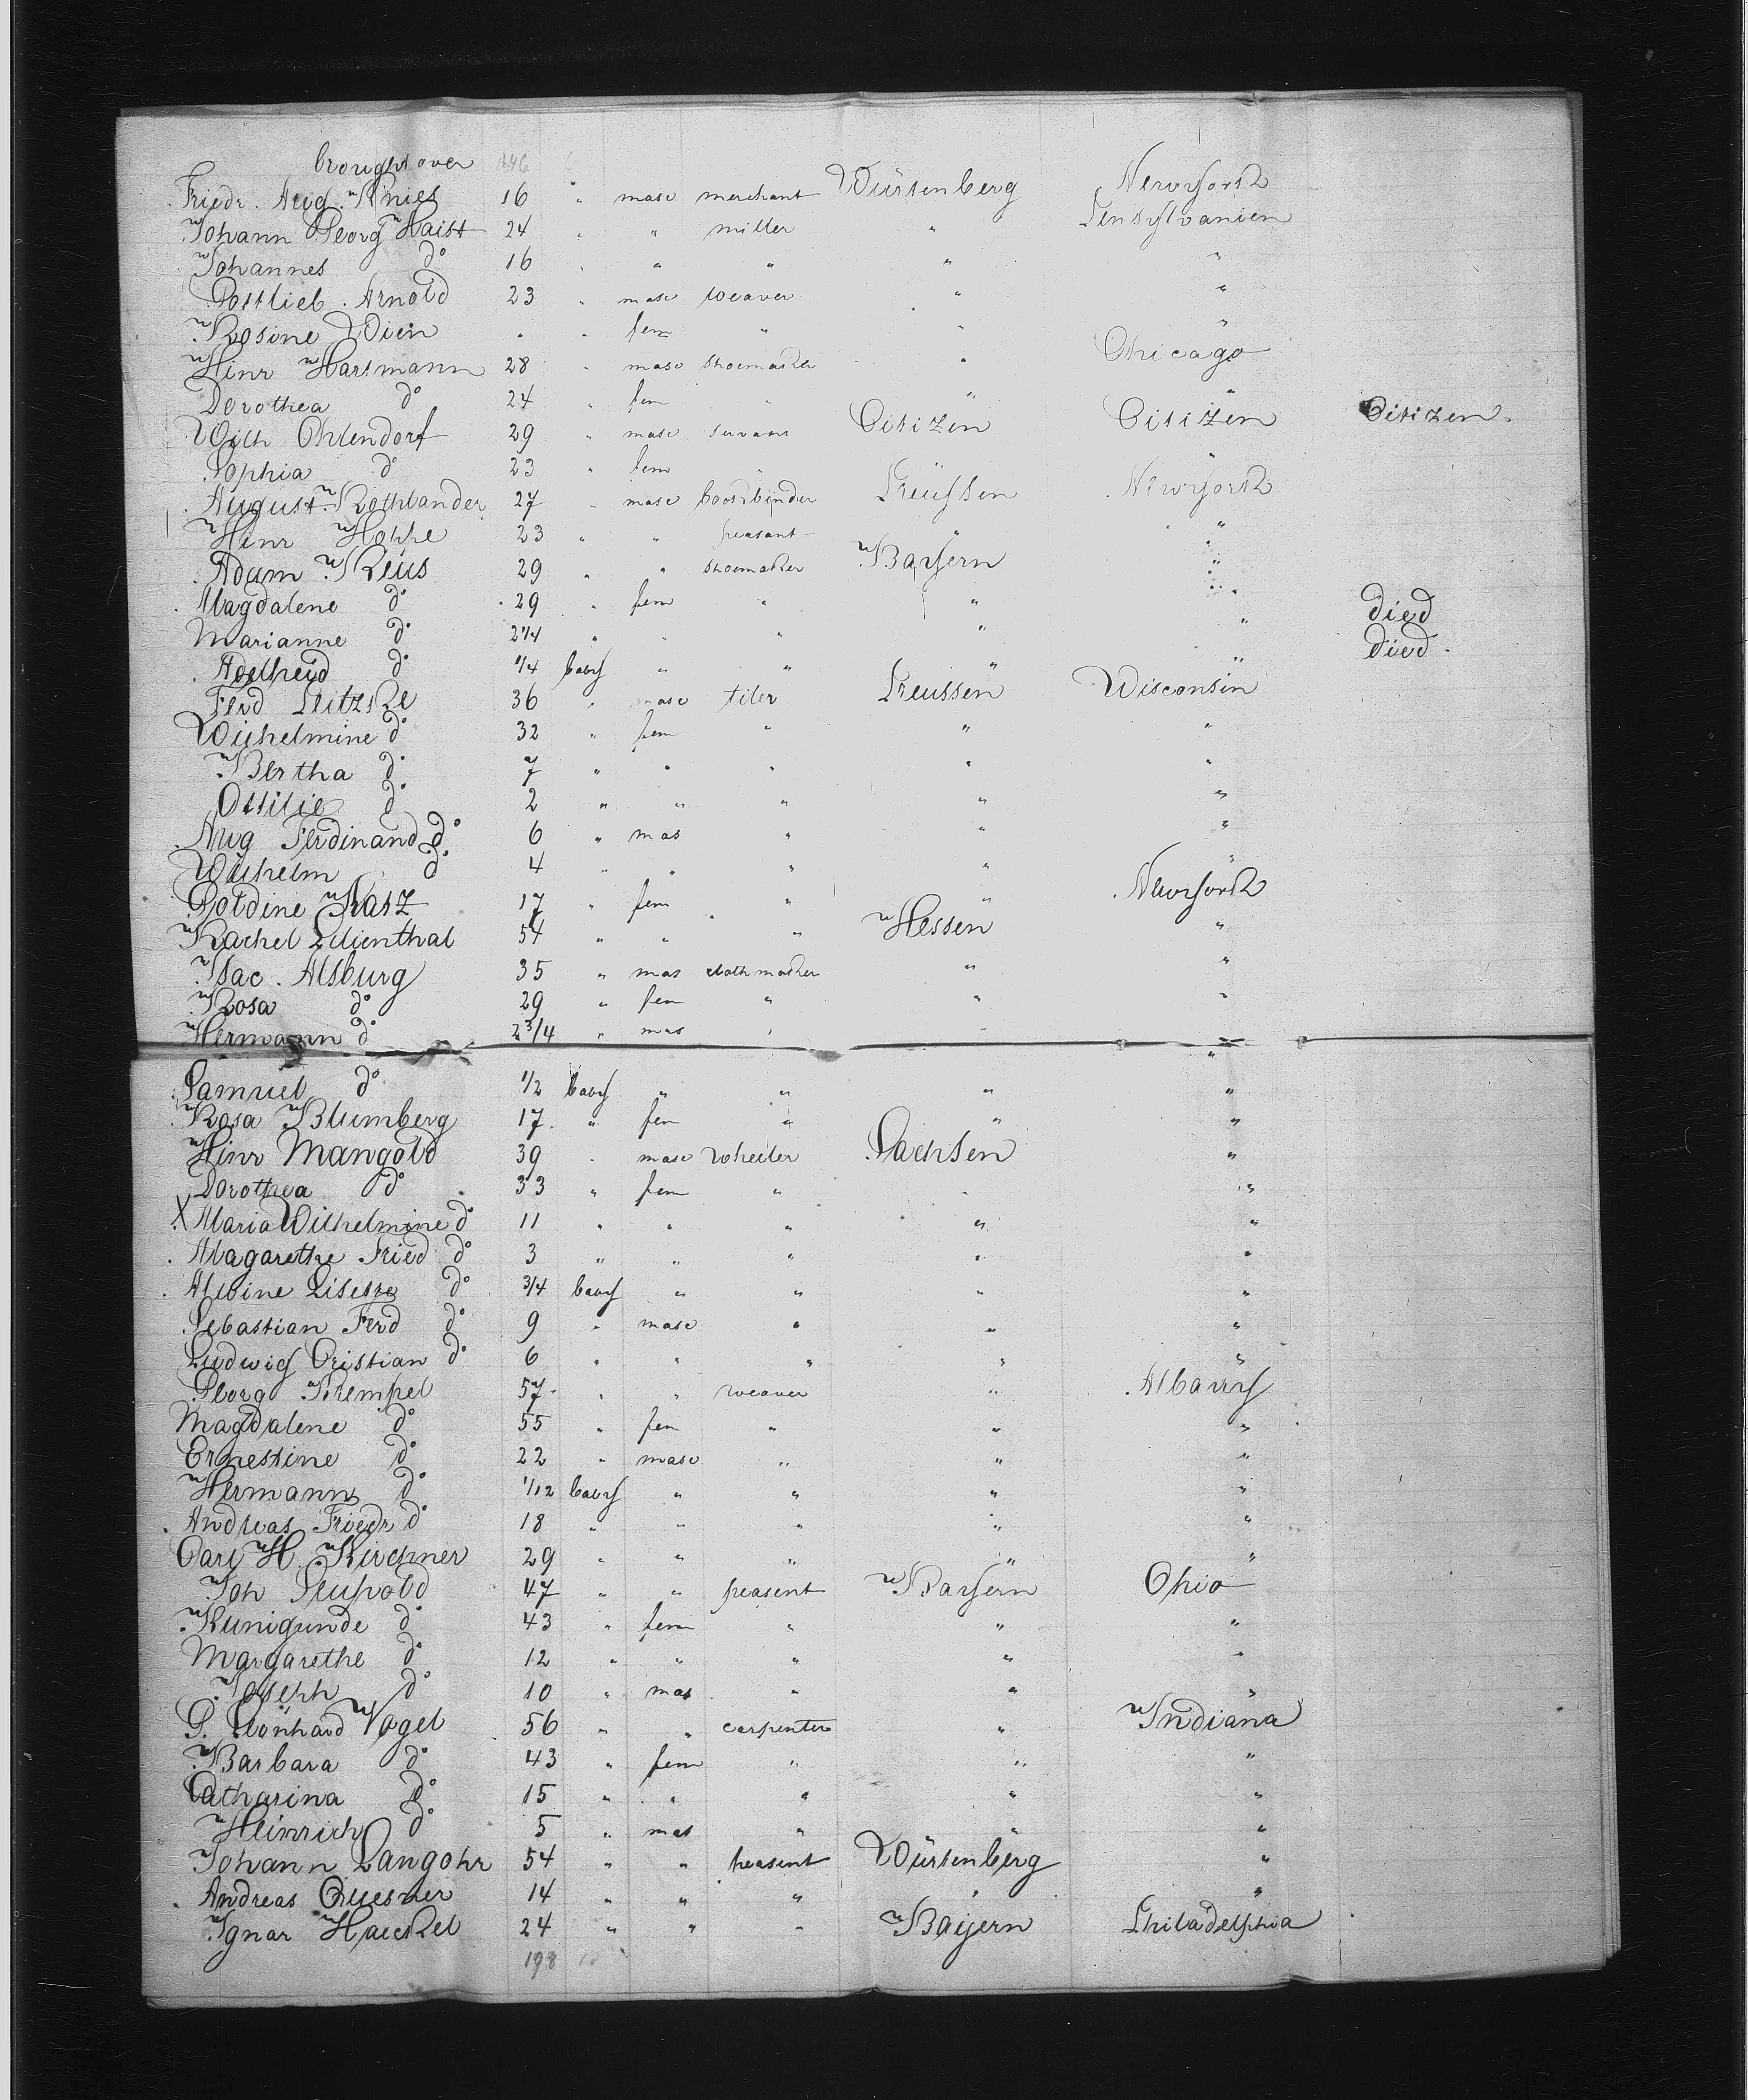 brought over 146 6
Friedr. Aug. Knies 16 " masc merchant Würtenberg Newyork
Johann Georg Haist 24 " " miller " Pensylvanien
Johannes do 16 " " " " "
Gottlieb Arnold 23 " masc weaver " "
Rosine Wein " " fem " " "
Hinr Hartmann 28 " masc shoemaker " Chicago
Dorothea do 24 " fem " " "
Wilh Ohlendorf 29 " masc servant Citizen Citizen Citizen.
Sophia do 23 " fem " "
August Rothlander 27 " masc bookbinder Preußen Newyork
Hinr Hoppe 23 " " peasant " "
Adam Reus 29 " " shoemaker Bayern "
Magdalene do 29 " fem " " " died
Marianne do 2 1/4 " " " " " died.
Adelheid do 1/4 baby " " " "
Ferd Peitzke 36 " masc tiler Preussen Wisconsin
Wilhelmine do 32 " fem " " "
Bertha do 7 " " " " "
Ottilie do 2 " " " " "
Aug Ferdinand do 6 " mas " " "
Wilhelm do 4 " " " " "
Goldine Katz 17 " fem " " Newyork
Rachel Lilienthal 54 " " " Hessen "
Isac. Alsburg 35 " mas clothmaker " "
Rosa do 29 " fem " " "
Hermann do 2 3/4 " mas " " "
Samuel do 1/2 baby " " " "
Rosa Blumberg 17 " fem " " "
Hinr Mangold 39 " masc wheeler Sachsen "
Dorothea do 33 " fem " " "
X Maria Wilhelmine do 11 " " " " "
Magarethe Fried do 3 " " " " "
Albine Lisette do 3/4 baby " " " "
Sebastian Ferd do 9 " masc " " "
Ludwig Cristian do 6 " " " " "
Georg Krempel 57 " " weaver " Albany
Magdalene do 55 " fem " " "
Ernestine do 22 " masc " " "
Hermann do 1/12 baby " " " "
Andreas Friedr do 18 " " " " "
Carl H. Kirchner 29 " " " " "
Joh Leupold 47 " " peasent Bayern Ohio
Kunigunde do 43 " fem " " "
Margarethe do 12 " " " " "
Joseph do 10 " mas " " "
G. Leonhard Vogel 56 " " carpenter " Indiana
Barbara do 43 " fem " " "
Catharina do 15 " " " " "
Heinrich do 5 " mas " " "
Johann Langohr 54 " " peasent Würtenberg "
Andreas 14 " " " " "
Ignaz Haeckel 24 " " " Bayern Philadelphia
198 10